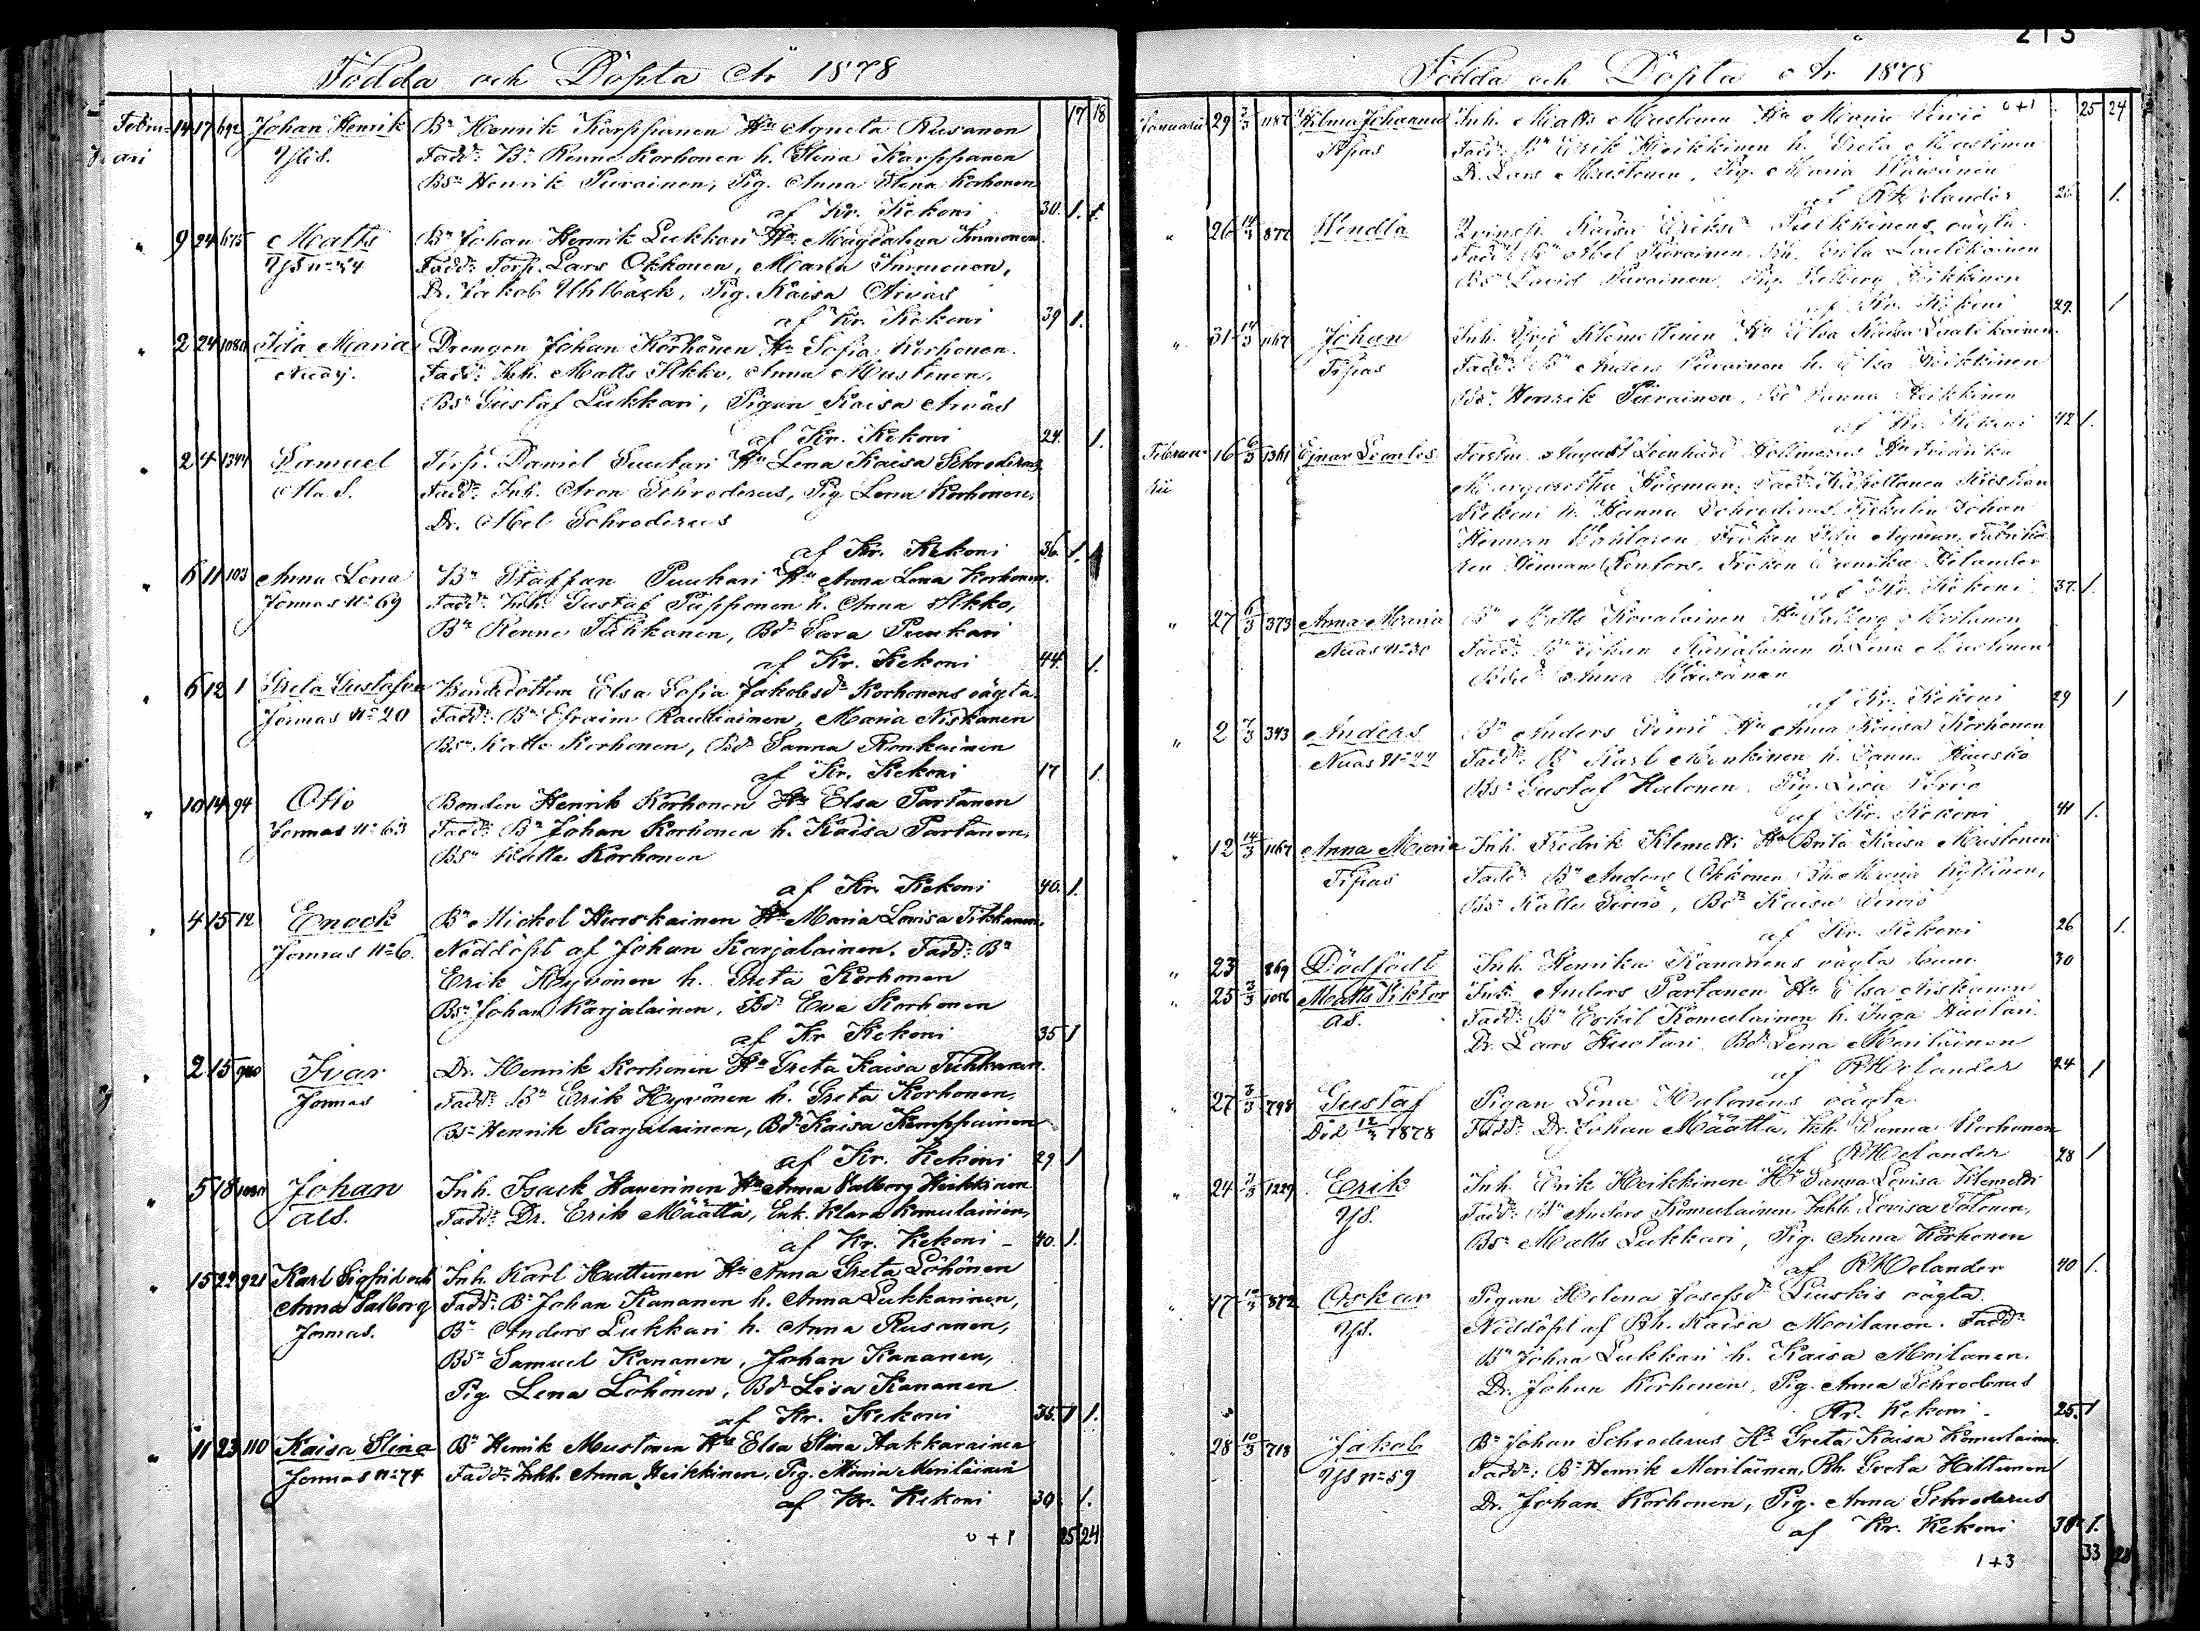 Födda och Döpta År 1878
17 18
Februari 14 17 692 Johan Henrik Bn Henrik Karppanen Hu Agneta Rusanen
Yljs. Fadd: Bn Renne Korhonen h. Stina Karppanen
Bsn Henrik Piirainen, Pig. Anna Stina Korhonen
af Kr. Kekoni 30. 1.
" 9 24 675 Matts Bn Johan Henrik Lukkari Hu Magdalena Immonen
YjS No 54 Fadd: Torp. Lars Okkonen, Maria Immonen,
Dr. Jakob Uhlbäck, Pig. Kaisa Arväs
af Kr. Kekoni 39 1.
" 2 24 1080 Ida Maria Drengen Johan Korhonen Hu Sofia Korhonen
Fadd: Inh. Matts Ilkko, Anna Mustonen,
Bsn Gustaf Lukkari, Pigan Kaisa Arväs
af Kr. Kekoni 24. 1.
" 2 4 1344 Samuel Torp. Daniel Suutari Hu Lena Kaisa Schroderus
Fadd: Inh. Aron Schroderus, Pig Lena Korhonen,
Dr. Abel Schroderus
af Kr. Kekoni 36. 1.
" 6 11 103 Anna Lena Bn Staffan Puukari Hu Anna Lena Korhonen.
Jormas No 69 Fadd: Inh. Gustaf Papponen h. Anna Ilkko,
Bn Renne Tuhkanen, Bdr Sara Puukari
af Kr. Kekoni 44. 1.
" 6 12 1 Greta Gustafva Bondedottern Elsa Sofia Jakobsdr Korhonens oägta.
Jormas No 20 Fadd: Bn Efraim Rautiainen, Maria Niskanen
Bsn Kalle Korhonen, Bdr Sanna Ronkainen
af Kr. Kekoni 17 1.
" 10 14 94 Otto Bonden Henrik Korhonen Hu Elsa Partanen
Jormas No 63 Fadd: Bn Johan Korhonen h. Kaisa Partanen,
Bsn Kalle Korhonen
af Kr. Kekoni 40. 1.
" 4 15 12 Enock Bn Mickel Huuskainen Hu Maria Lovisa Tuhkanen.
Jormas No 6. Nöddöpt af Johan Karjalainen. Fadd: Bn
Erik Hyvönen h. Greta Korhonen
Bsn Johan Karjalainen, Bdr Eva Korhonen
af Kr Kekoni 35 1
" 2 15 Ivar Dr. Henrik Korhonen Hu Greta Kaisa Tuhkanen.
Jormas Fadd: Bn Erik Hyvönen h. Greta Korhonen,
Bsn Henrik Karjalainen, Bdr Kaisa Kemppainen
af Kr. Kekoni 29 1
" 5 18 Johan Inh. Isack Haverinen Hu Anna Valborg Heikkinen
Als. Fadd: Dr. Erik Määttä, Enk. Klara Komulainen,
af Kr. Kekoni 40. 1.
" 15 22 921 Karl Sigfrid och Inh. Karl Huttunen Hu Anna Greta Löhönen
Anna Valborg Fadd: Bn Johan Kananen h. Anna Lukkarinen,
Jormas. Bn Anders Lukkari h. Anna Rusanen,
Bsn Samuel Kananen, Johan Kananen,
Pig Lena Löhönen, Bdr Lisa Kananen
af Kr. Kekoni 35. 1 1.
" 11 23 110 Kaisa Stina Bn Henrik Mustonen Hu Elsa Stina Hakkarainen
Jormas No 74 Fadd: Inh. Anna Heikkinen, Pig. Maria Meriläinen
af Kr. Kekoni 30. 1.
0+1 25 24
213
Födda och Döpta År 1878
0+1 25 24
Januari 29 3/3 1187 Hilma Johanna Inh. Matts Mustonen Hu Maria Servio
Tipas Fadd: Bn Erik Heikkinen h. Greta Mustonen
Dr. Lars Mustonen, Pig. Maria Väisänen
af RHelander 26 1.
" 26 14/3 872 Hendla Qvinsp. Kaisa Eriksdr Pulkkinens oägta.
Fadd: Bn Abel Piirainen
Bsn David Piirainen, Pig. Valborg Heikkinen
af Kr. Kekoni 29. 1
" 31 14/3 1167 Johan Inh. Yrjö Klemettinen Hu Elsa Kaisa
Tipas Fadd: Bn Anders Piirainen h. Elsa Heikkinen
Bsn Henrik Piirainen, Sanna Heikkinen
af Kr. Kekoni 42 1.
Februarii 16 6/3 1361 Ejnar Leontes August Leonhard Hollmerus Hu Fredrika
Margaretha Högman. Fadd: Kapellanen Kristian
Kekoni h. Hanna Schroderus, Johan
Herman Fröken Ida Nyman,
Herman Renfors, Fröken Helander
af Kr. Kekoni 37. 1.
" 27 6/3 373 Anna Maria Bn Matts Kovalainen Hu Valborg Moilanen
Nuas No 30 Fadd: Bn Johan Karjalainen h. Lena Mustonen
Bdr Anna Väisänen
af Kr. Kekoni 29 1
" 2 7/3 343 Anders Bn Anders Servio Hu Anna Kaisa Korhonen
Nuas No 22 Fadd: Bn Karl h. Sanna
Bsn Gustaf Halonen, Pig. Lisa Servo
af Kr. Kekoni 41 1.
" 12 14/3 1167 Anna Maria Inh. Fredrik Klemetti Hu Brita Kaisa Mustonen
Tipas Fadd: Bn Anders Okkonen, Maria Kyllönen,
Bsn Kalle Servio, Bdr Kaisa Servio
af Kr. Kekoni 26 1.
" 23 869 Dödfödt Inh. Henrika Kananens oägta barn. 30
" 25 3/3 1086 Matts Viktor Inh. Anders Partanen Hu Elsa Niskanen
As. Fadd: Bn Eskil Komulainen h. Inga Huotari.
Dr. Lars Huotari, Bdr Lena Meriläinen
af RHelander 24 1
" 27 3/3 798 Gustaf Pigan Lena Halonens oägta.
Död 1878 Fadd: Dr. Johan Määttä, Inh. Sanna Korhonen
af RHelander 28 1
" 24 3/3 1229 Erik Inh. Erik Heikkinen Hu Sanna Lovisa Klemetti
YjS. Fadd: Bn Anders Komulainen, Inhh. Lovisa Tolonen,
Bsn Matts Lukkari, Pig. Anna Korhonen
af RHelander 40 1.
" 17 10/3 872 Oskar Pigan Helena Josefsdr Liuskis oägta.
YjS. Nöddöpt af Bh. Kaisa Moilanen. Fadd:
Bn Johan Lukkari h. Kaisa Moilanen.
Dr. Johan Korhonen, Pig. Anna Schroderus
Kr. Kekoni 25. 1
28 10/3 713 Jakob Bn Johan Schroderus Hu Greta Kaisa Komulainen
YjS No 59 Fadd: Bn Henrik Meriläinen, Bh. Greta Hiltunen
Dr. Johan Korhonen, Pig. Anna Schroderus
af Kr. Kekoni 38 1.
1+3 33 28